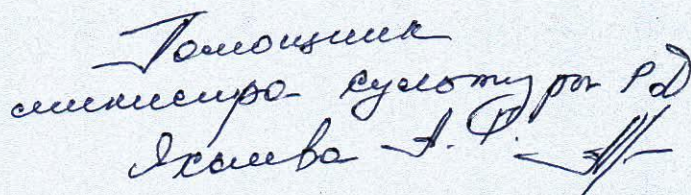 Помощник
министра культуры РД
Яхъяева А. Ф.